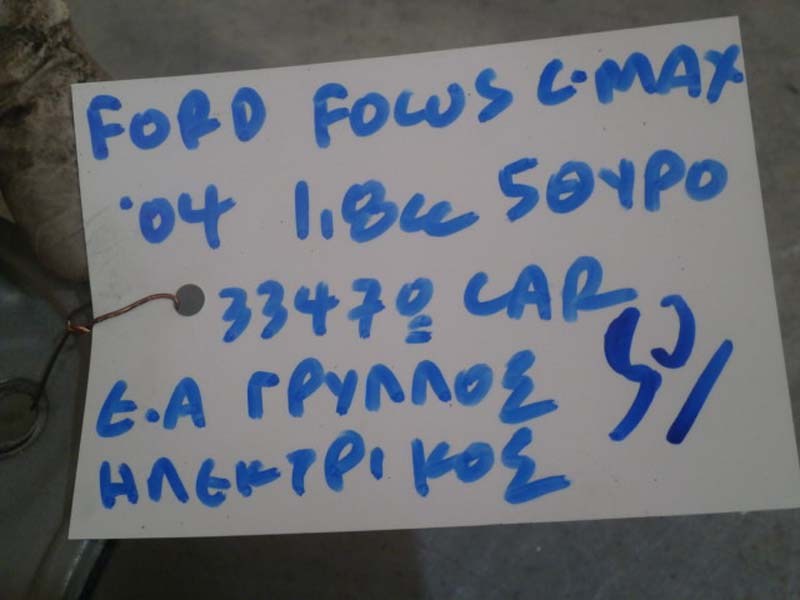 FORD FOCUS C-MAX
'04 1,8cc 5ΘΥΡΟ
33470 CAR
Ε.Α ΓΡΥΛΛΟΣ
ΗΛΕΚΤΡΙΚΟΣ